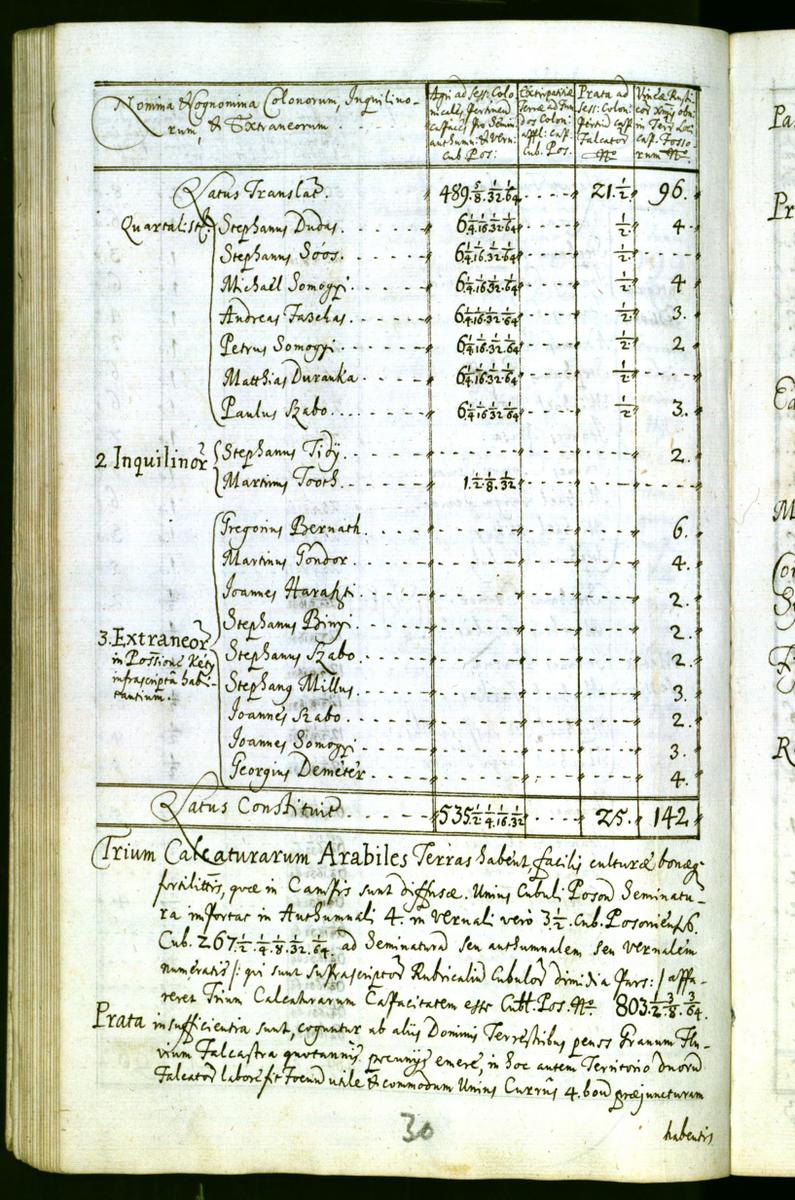 Nomina & Cognomina Colonorum, Inquilino-
rum, & Extraneorum
Agri ad Sess: Colo
nicales Pertinen
capaces pro Semin:
authumn: & Vern:
Cub. Pos:
Extirpatitiæ
Terræ ad Fun
dos Colon:
appl: cap.
Cub. Pos.
Prata ad
Sess: Colon:
Pertin cap.
Falcator
No
Vineæ Rusti
in Terr: Loci
cap. Fosso
rum No.
Latus Translat. 489. 5/8. 1/32. 1/64 21. 1/2. 96.
Quartalist: Stephanus Dudas. 6 1/4. 1/16. 1/32. 1/64 1/2. 4
Stephanus Soós. 6 1/4. 1/16. 1/32. 1/64 1/2.
Michael Somogyi. 6 1/4. 1/16. 1/32. 1/64 1/2. 4
Andreas Fazekas. 6 1/4. 1/16. 1/32. 1/64 1/2. 3.
Petrus Somogyi. 6 1/4. 1/16. 1/32. 1/64 1/2. 2
Matthias Duranka 6 1/4. 1/16. 1/32. 1/64 1/2.
Paulus Szabo. 6 1/4. 1/16. 1/32. 1/64 1/2. 3.
2 Inquilinor Stephanus Tidÿ. 2.
Martinus Tooth. 1. 1/2. 1/8. 1/32.
Gregorius Bernath. 6.
Martinus Gondor. 4.
Joannes Harahzti. 2.
Stephanus Binyi. 2.
3. Extraneor
in Possione Kéty
infrascripta habi-
tantium.
Stephanus Szabo. 2.
Stephanus Millus. 3.
Joannes Szabo. 2.
Joannes Somogyi. 3.
Georgius Demeter. 4.
Latus Constituit 535. 1/2. 1/4. 1/16. 1/32 25. 142.
Trium Calcaturarum Arabiles Terras habent, facilis culturæ bonæq
fertilittis, quæ in Campis sunt diffusæ. Unius Cubuli Poson Seminatu-
ra importat in Authumnali 4. in vernali vero 3 1/2. Cub. Posoniens.
Cub. 267. 1/2. 1/4. 1/8. 1/32. 1/64. ad Seminaturã seu authumnalem seu vernalem
numeratis /: qui sunt suprascriptor Rubricalium Cubulor dimidia Pars: / appa-
reret Trium Calcaturarum Capacitatem esse Cubl. Pos. No. 803. 1/2. 3/8. 3/64.
Prata insufficientia sunt, coguntur ab aliis Dominis Terrestribus penes Granum Flu-
vium Falcastra quotannis pecuniis emere, in hoc autem Territorio duorum
Falcator labore fit Foenum utile & commodum Unius Currus 4. bou præjuncturam
habentis
30
Pa
Pr
M
R